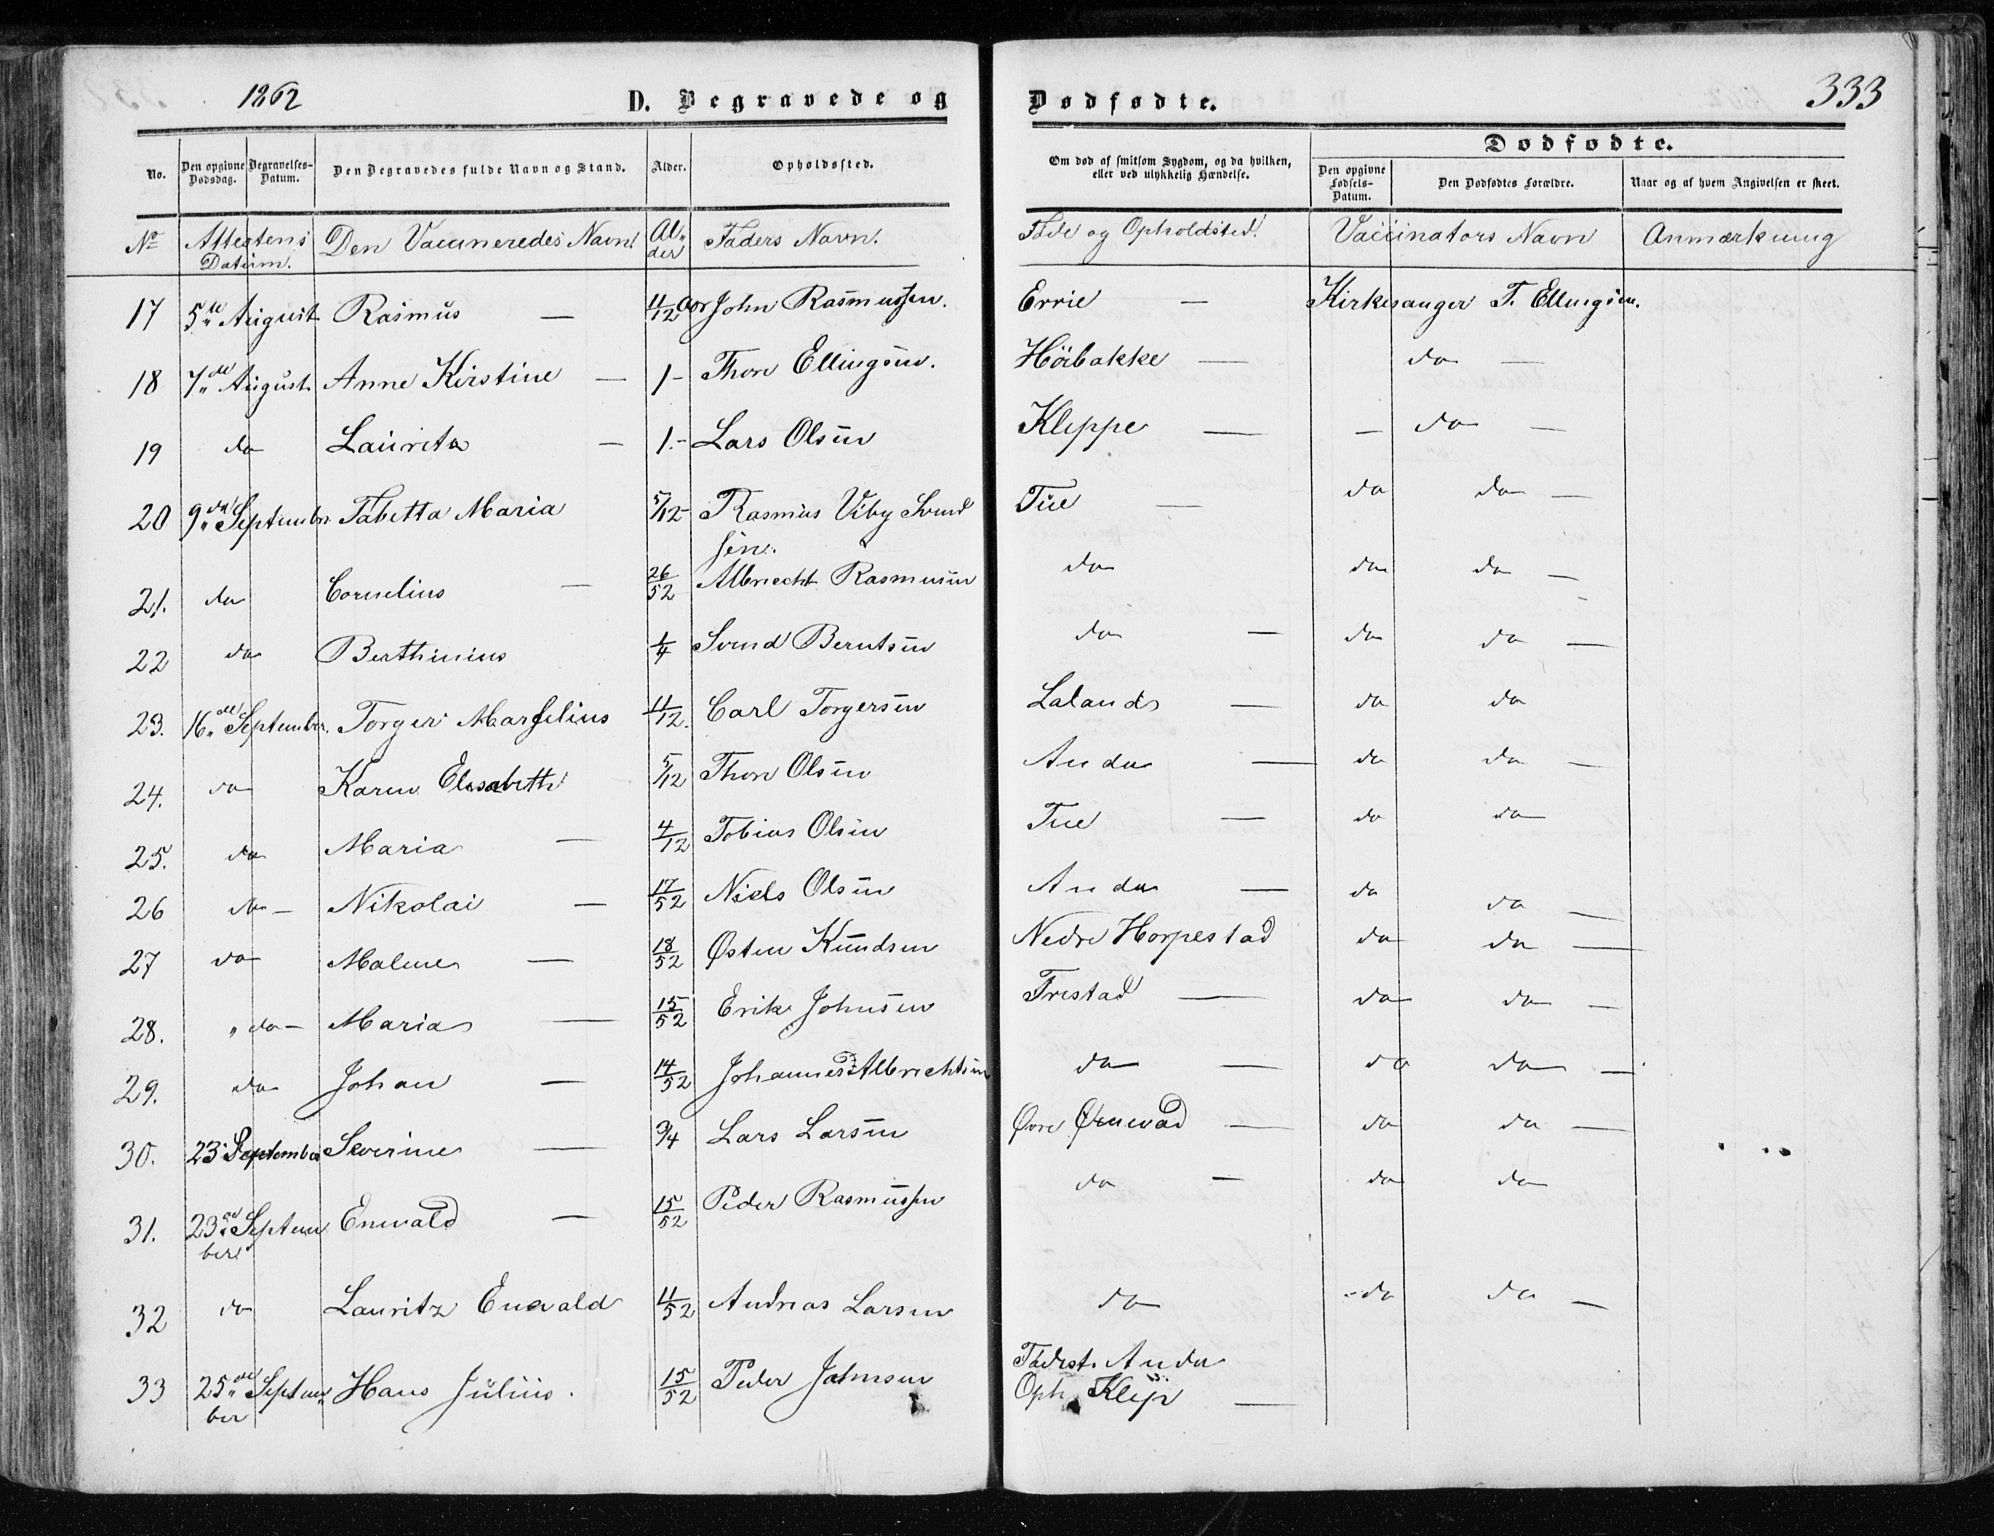 1862 D. Begravede og Dødfødte. 333
Dødfødte.
No. Den opgivne Dødsdag. Begravelses-Datum. Den Begravedes fulde Navn og Stand. Alder. Opholdssted. Om død af smitsom Sygdom, og da hvilken, eller ved ulykkelig Hændelse. Den opgivne Fødsels-Datum. Den Dødfødtes Forældre. Naar og af hvem Angivelsen er skeet.
No Attestens Datum. Den Vaccineredes Navn Al-der Faders Navn. Føde og Opholdsted. Vaccinators Navn Anmærkning
17 5te August Rasmus — 11/12 Aar John Rasmussen. Errie — Kirkesanger T. Ellingsen.
18 7de August Anne Kirstine — 1- Thore Ellingsen. Høibakke — do —
19 do Laurita — 1.- Lars Olsen Kleppe — — do —
20 9de September Tabetta Maria 5/12- Rasmus Viby Svend
sen. Tue — do do —
21. do Cornelius — 26/52 Albrecht Rasmusen do do do —
22 do Berthinius 1/4 Svend Berntsen do — do do —
23. 16de September. Torger Marselius 11/12. Carl Torgersen Laland — do do
24. do Karen Elisabeth 5/12 Thore Olsen Anda — do do —
25. do Maria — 4/12 Tobias Olsen Tue — do do
26 do — Nikolai — 17/52 Niels Olsen Anda — do do —
27 do Malene — 18/52 Østen Knudsen Nedre Horpestad do do —
28. " do — Maria — 15/52 Erik Johnsen Friestad — do do —
29. do Johan — 14/52 Johannes Albrechtsen do — do do —
30. 23 September Severine — 3/4 Lars Larsen Øvre — do do —
31. 23de Septem
ber Enevald — 15/52 Peder Rasmussen do — do do
32 do Lauritz Enevald 11/52 Andreas Larsen do - do do —
33 25de Septem
ber Hans Julius. 15/52 Peder Johnsen Fødest. Anda
Oph. Klep —